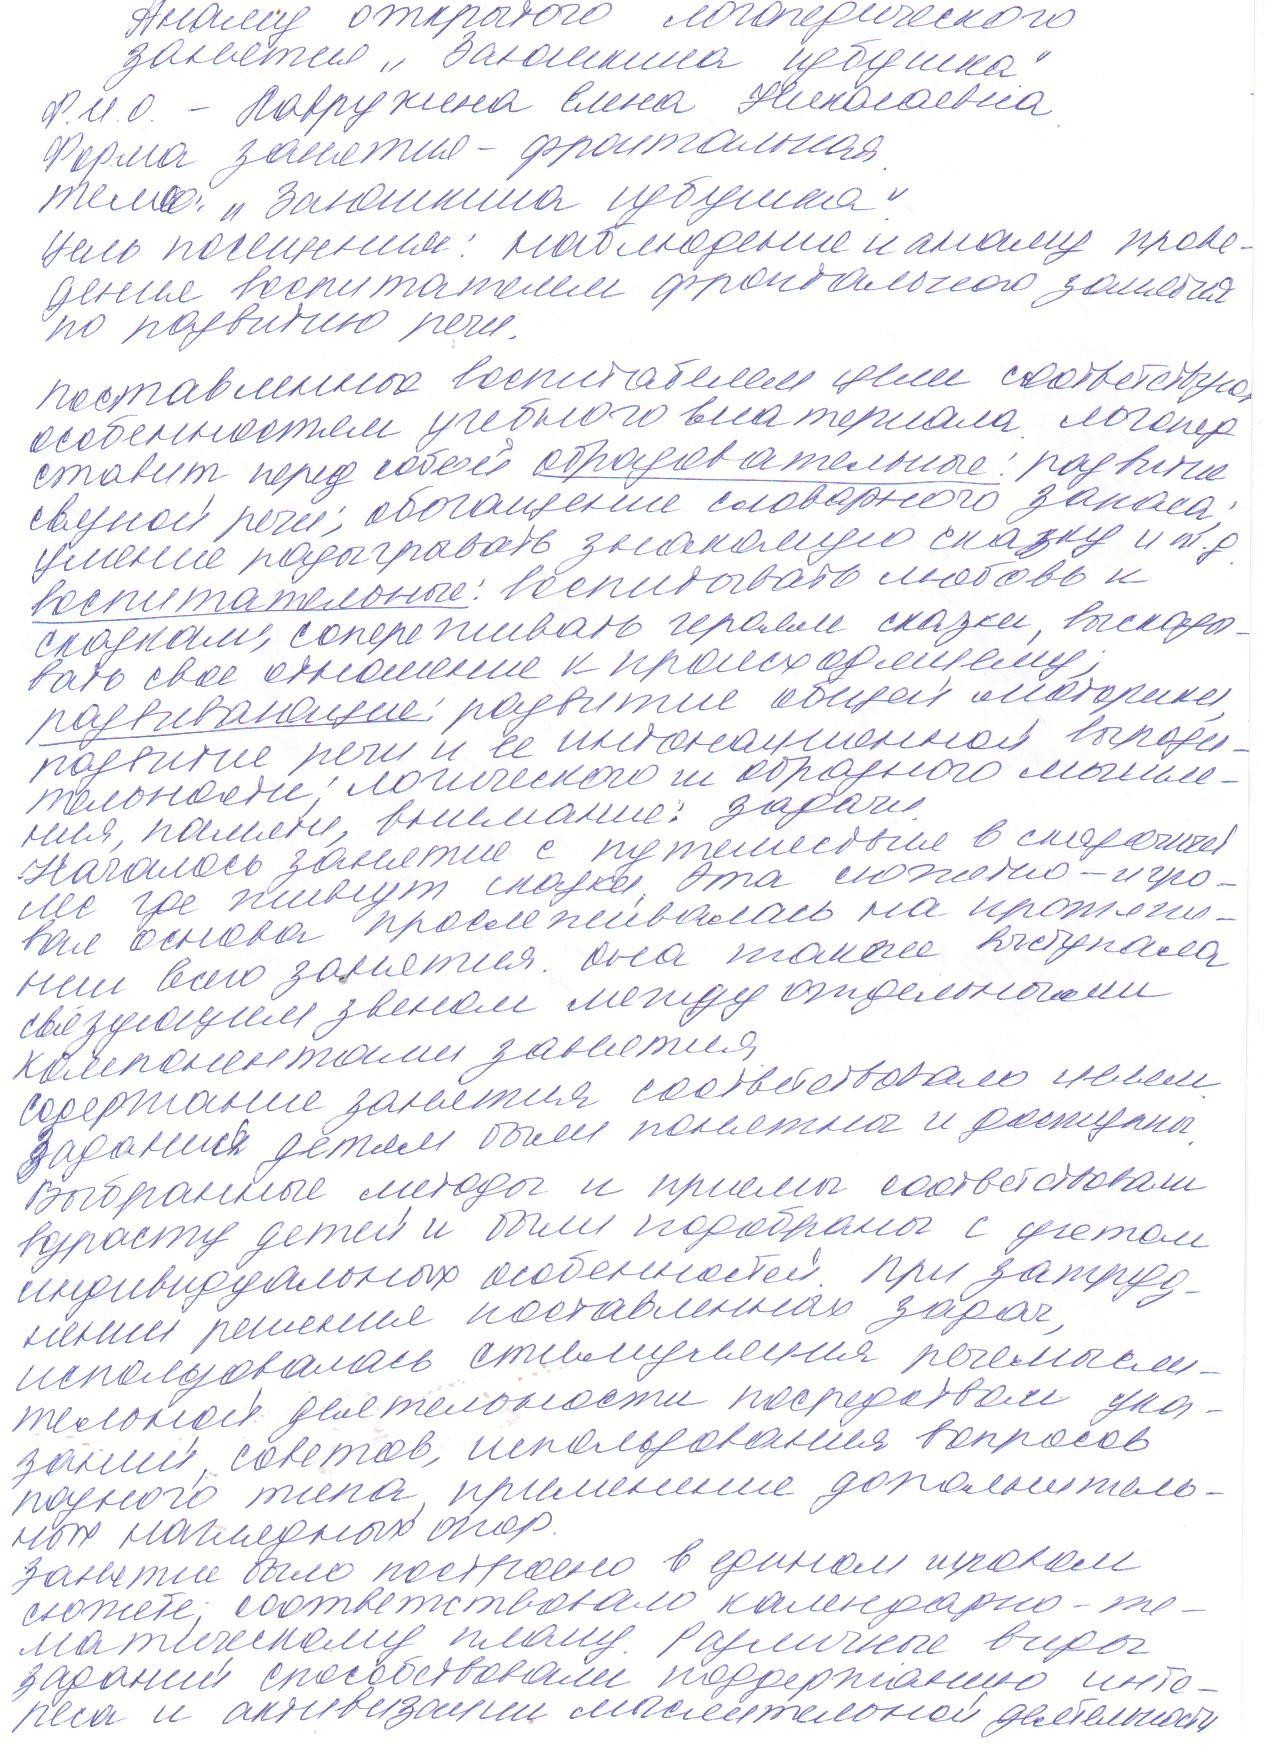 Анализ открытого логопедического
занятия „Заюшкина избушка"
Ф.И.О. - Наврузкина Елена Николаевна
Форма занятия - фронтальная.
тема: „Заюшкина избушка".
Цель посещения: наблюдение и анализ прове-
дения воспитателем фронтального занятия
по развитию речи.
Поставленные воспитателем цели соответствуют
особенностям учебного материала. Логопед
ставит перед собой образовательные: развитие
связной речи; обогащение словарного запаса;
умение разыгравать знакомую сказку и т.д.
воспитательные: воспитывать любовь к
сказкам, сопереживать героям сказки, высказы-
вать свое отношение к происходящему;
развивающие: развитие общей моторики,
развитие речи и ее интонационной вырази-
тельности; логического и образного мышле-
ния, памяти, внимание: задачи.
Началось занятие с путешествие в сказочный
лес где живут сказки. Эта сюжетно-игро-
вая основа прослеживалась на протяже-
нии всего занятия. Она также выступала
связующим звеном между отдельными
компонентами занятия
содержание занятия соответствовало целям.
Задания детям были понятны и доступны.
Выбранные методы и приемы соответствовали
возрасту детей и были подобраны с учетом
индивидуальных особенностей. При затруд-
нении решения поставленных задач,
использовалась стимуляция речемысли-
тельной деятельности посредством ука-
заний, советов, использования вопросов
разного типа, применение дополнитель-
ных наглядных опор.
Занятие было построено в едином игровом
сюжете, соответствовало календарно-те-
матическому плану. Различные виды
заданий способствовали поддержанию инте-
реса и активизации мыслительной деятельности